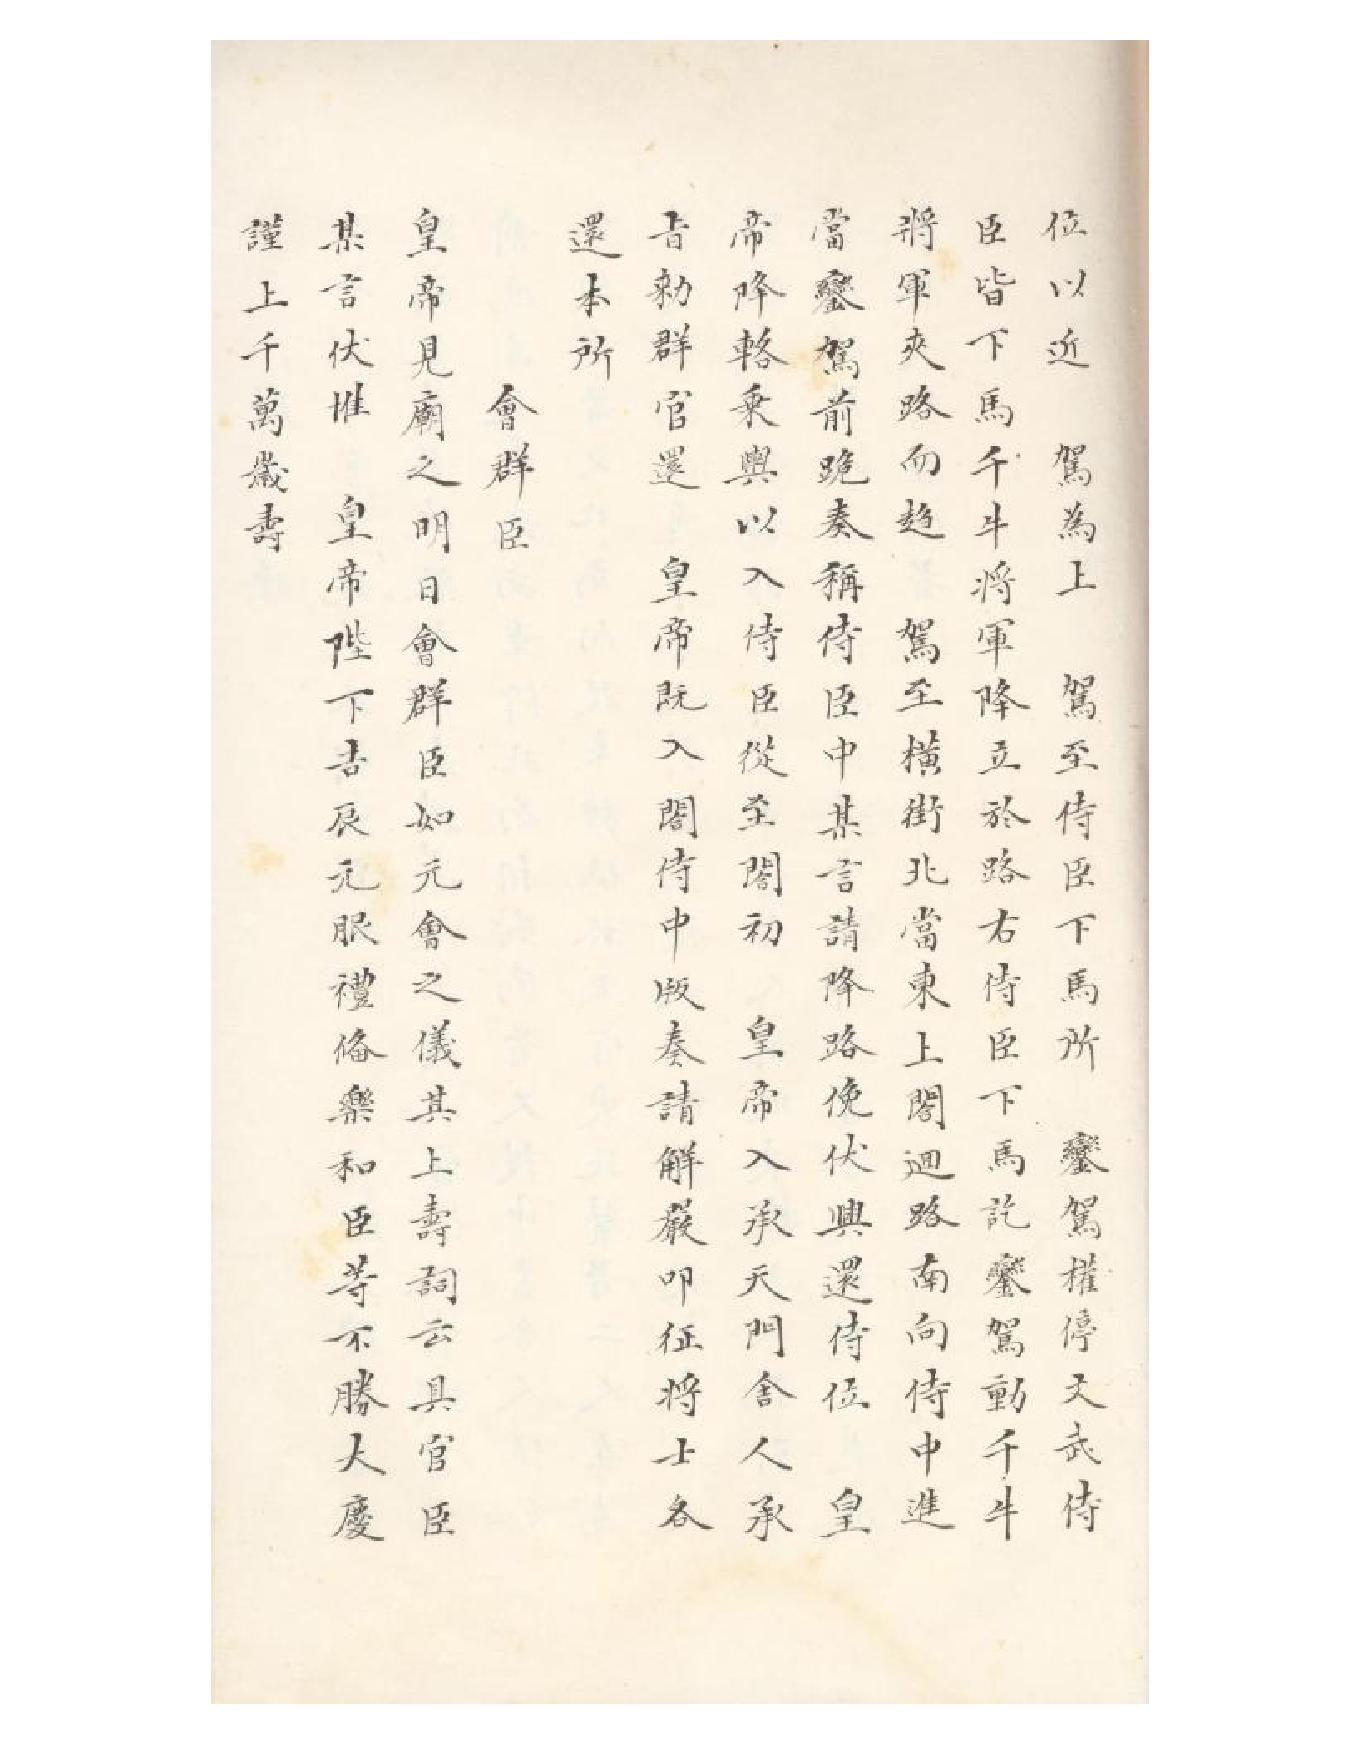 位以近　駕為上　駕至侍臣下馬所　鑾駕權停文武侍
臣皆下馬千牛將軍降立於路右侍臣下馬訖鑾駕動千牛
將軍夾路而趍　駕至橫街北當東上閤迴路南向侍中進
當鑾駕前跪奏稱侍臣中某言請降路俛伏興還侍位　皇
帝降輅乗輿以入侍臣從至閤初　皇帝入承天門舍人承
旨勑群官還　皇帝既入閤侍中版奏請解嚴叩征將士各
還本所
會群臣
皇帝見廟之明日會群臣如元會之儀其上壽詞云具官臣
某言伏惟　皇帝陛下吉辰元服禮俻樂和臣等不勝大慶
謹上千萬歲壽